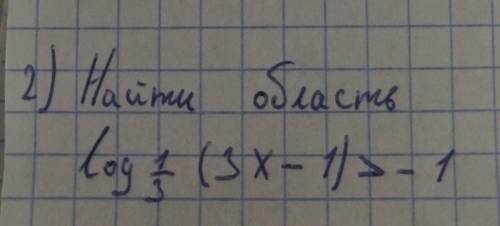 2) Найти область
log 1/3 (3x - 1) > - 1